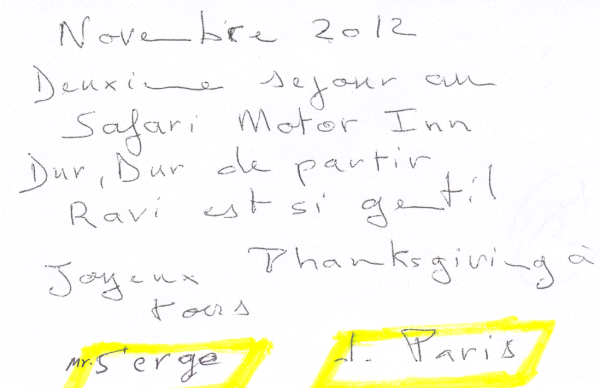 Novembre 2012
Deuxime sejour au
Safari Motor Inn
Dur, Dur de partir
Ravi est si gentil
Joyeux Thanksgiving à
tous
Mr. Serge J. Paris